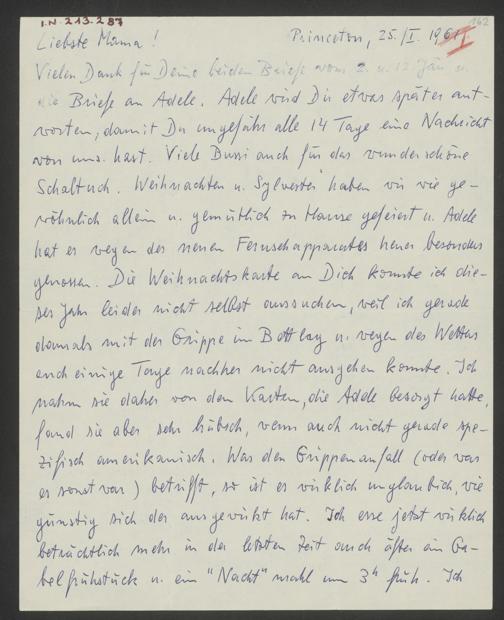 I.N. 213.287
162
Liebste Mama!
Princeton, 25./I. 1961
I.
Vielen Dank für Deine beiden Briefe vom 2. u. 12. Jän. u.
die Briefe an Adele. Adele wird Dir etwas später ant-
worten, damit Du ungefähr alle 14 Tage eine Nachricht
von uns hast. Viele Bussi auch für das wunderschöne
Schaltuch. Weihnachten u. Sylvester haben wir wie ge-
wöhnlich allein u. gemütlich zu Hause gefeiert u. Adele
hat es wegen des neuen Fernsehapparates heuer besonders
genossen. Die Weihnachtskarte an Dich konnte ich die-
ses Jahr leider nicht selbst aussuchen, weil ich gerade
damals mit der Grippe im Bett lag u. wegen des Wetters
auch einige Tage nachher nicht ausgehen konnte. Ich
nahm sie daher von den Karten, die Adele besorgt hatte,
fand sie aber sehr hübsch, wenn auch nicht gerade spe-
zifisch amerikanisch. Was den Grippenanfall (oder was
es sonst war) betrifft, so ist es wirklich unglaublich, wie
günstig sich der ausgewirkt hat. Ich esse jetzt wirklich
beträchtlich mehr in der letzten Zeit auch öfter ein Ga-
belfrühstück u. ein "Nacht"mahl um 3h früh. Ich